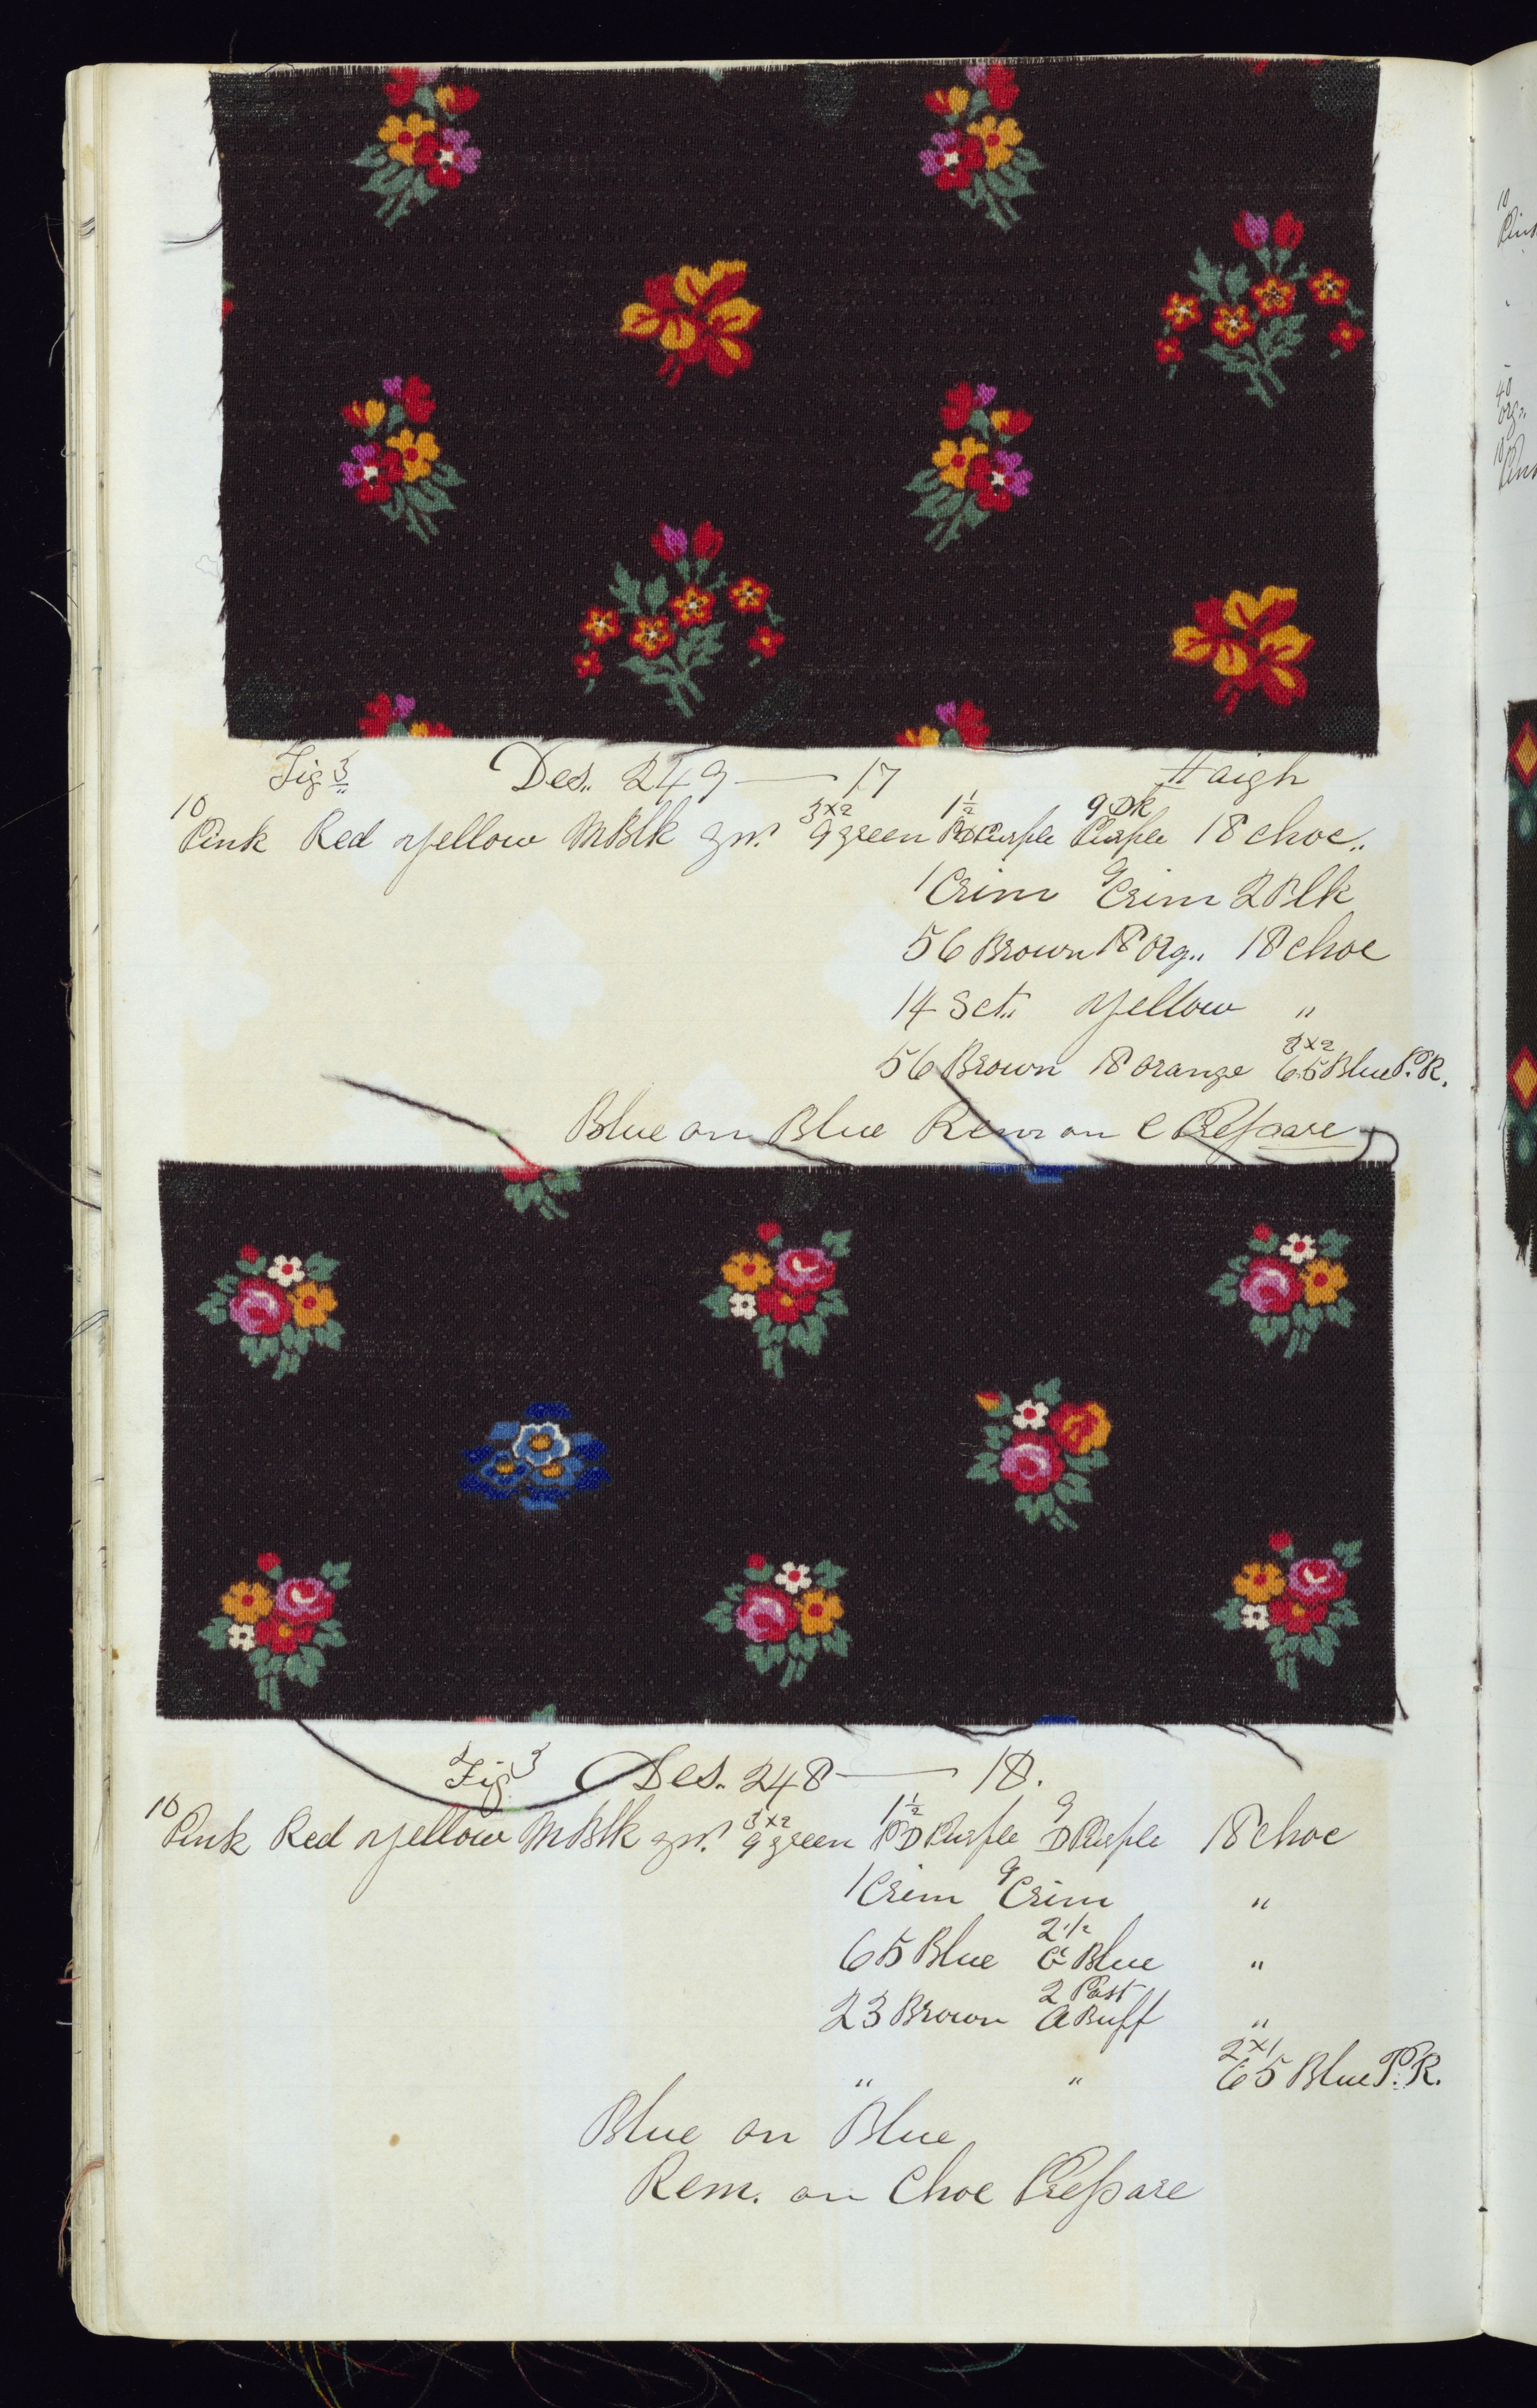 Fig 3 Des. 249 — 17 Haigh
10 Pink Red Yellow M Blk gn. 3x2 9 green 1½ PD Purple 9 DK Purple 18 choc.
1 Crim 9 Crim 2 Blk
56 Brown 18 Org. 18 choc
14 Sct. Yellow "
56 Brown 18 orange 3x2 65 Blue P.R.
Blue on Blue Rem on C Prepare
Fig 3 Des. 248 — 18.
10 Pink Red Yellow M Blk gn. 3x2 9 green 1½ PD Purple 9 D Purple 18 choc
1 Crim 9 Crim "
65 Blue 2½ Blue "
23 Brown 2 Past A Buff "
" " 2x1 65 Blue P.R.
Blue on Blue
Rem. on Choc Prepare
10
Pink
40
org.
10